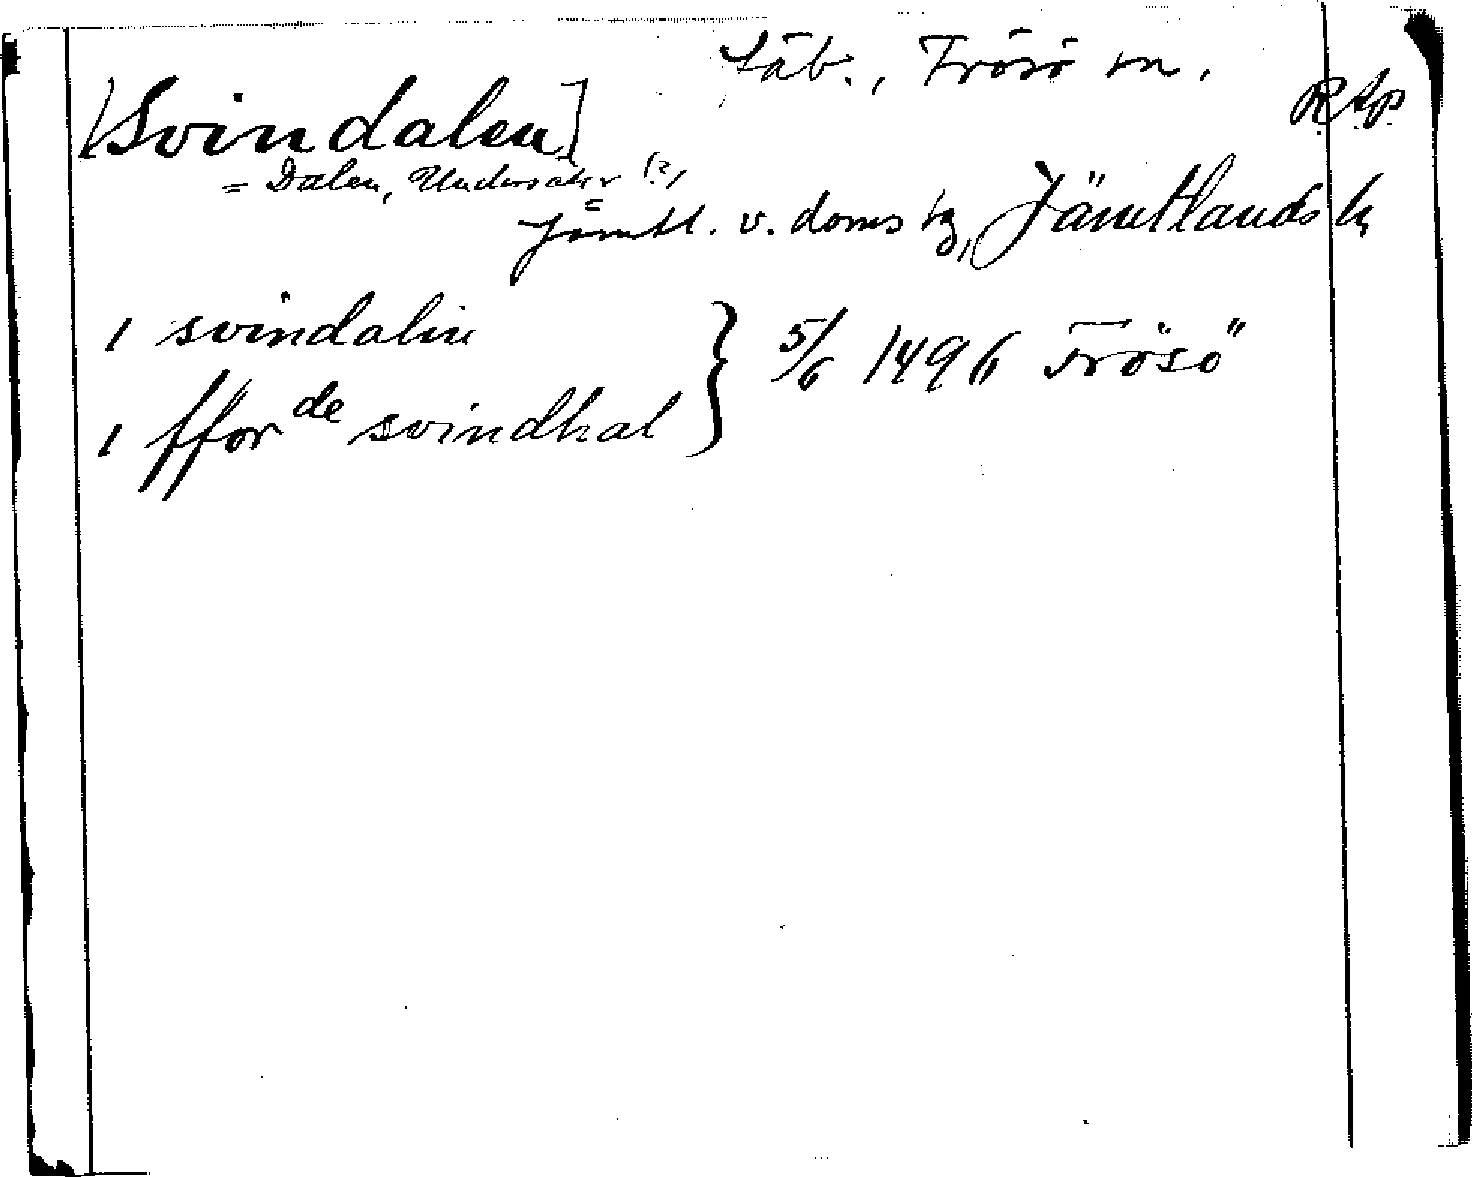 säb., Frösö sn.
[Svindalen]
RAp
= Dalen, Undersåker (?)
Jämtl. v. doms tg, Jämtlands h
1 svindalin
1 ffor de svindhal } 5/6 1496 Frösö